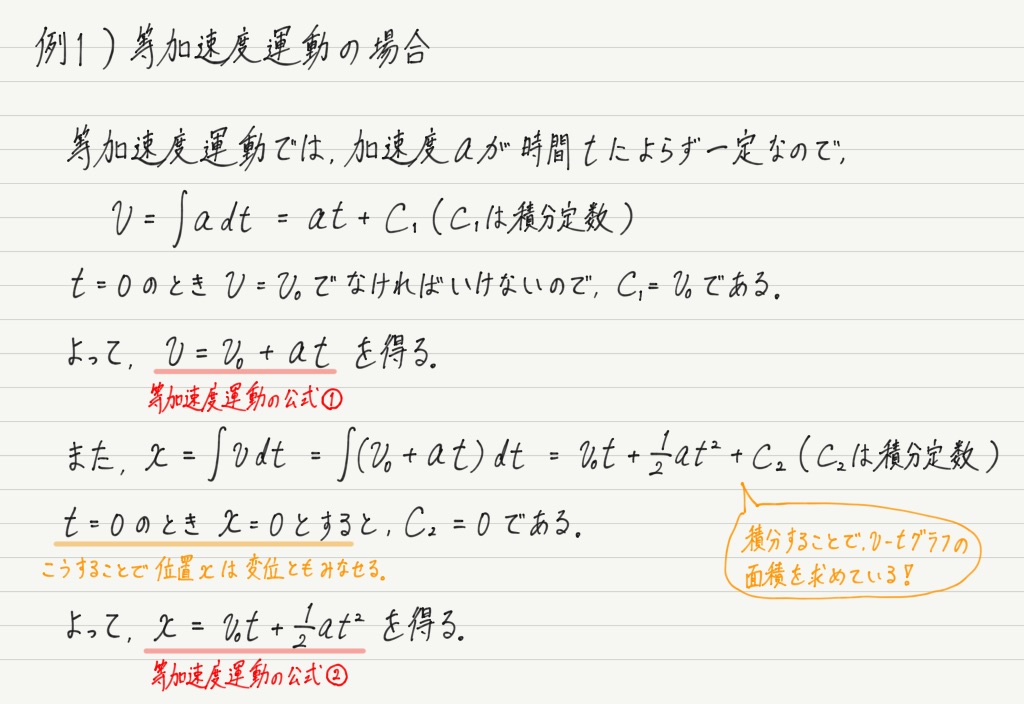 例1) 等加速度運動の場合
等加速度運動では, 加速度 a が時間 t によらず一定なので,
v = ∫a dt = at + C₁ (C₁は積分定数)
t = 0 のとき v = v₀ でなければいけないので, C₁ = v₀ である.
よって, v = v₀ + at を得る.
等加速度運動の公式①
また, x = ∫v dt = ∫(v₀ + at) dt = v₀t + 1/2 at² + C₂ (C₂は積分定数)
t = 0 のとき x = 0 とすると, C₂ = 0 である.
こうすることで 位置 x は 変位ともみなせる.
積分することで, v-tグラフの
面積を求めている!
よって, x = v₀t + 1/2 at² を得る.
等加速度運動の公式②